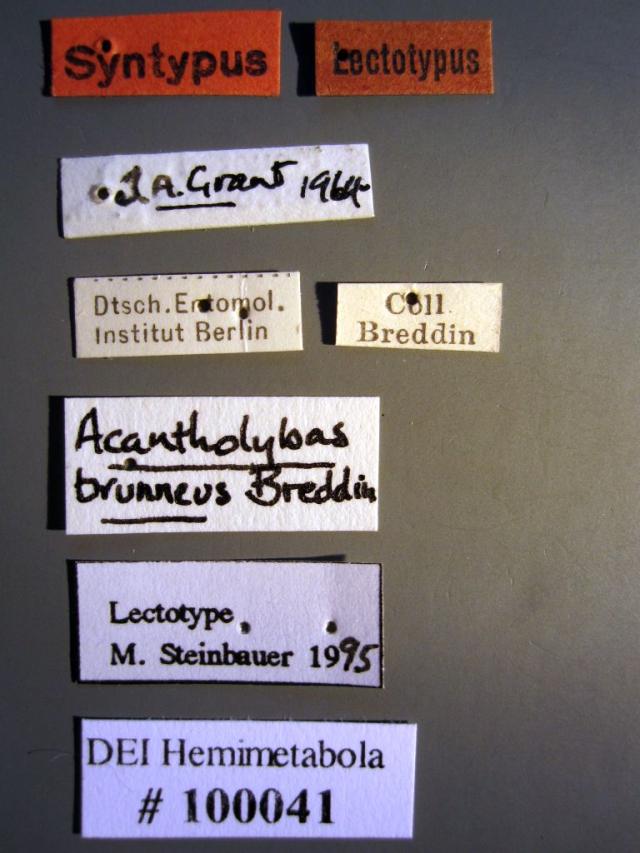 Syntypus
Lectotypus
J.A. Grant 1964
Dtsch. Entomol.
Institut Berlin
Coll
Breddin
Acantholybas
brunneus Breddin
Lectotype
M. Steinbauer 1995
DEI Hemimetabola
# 100041